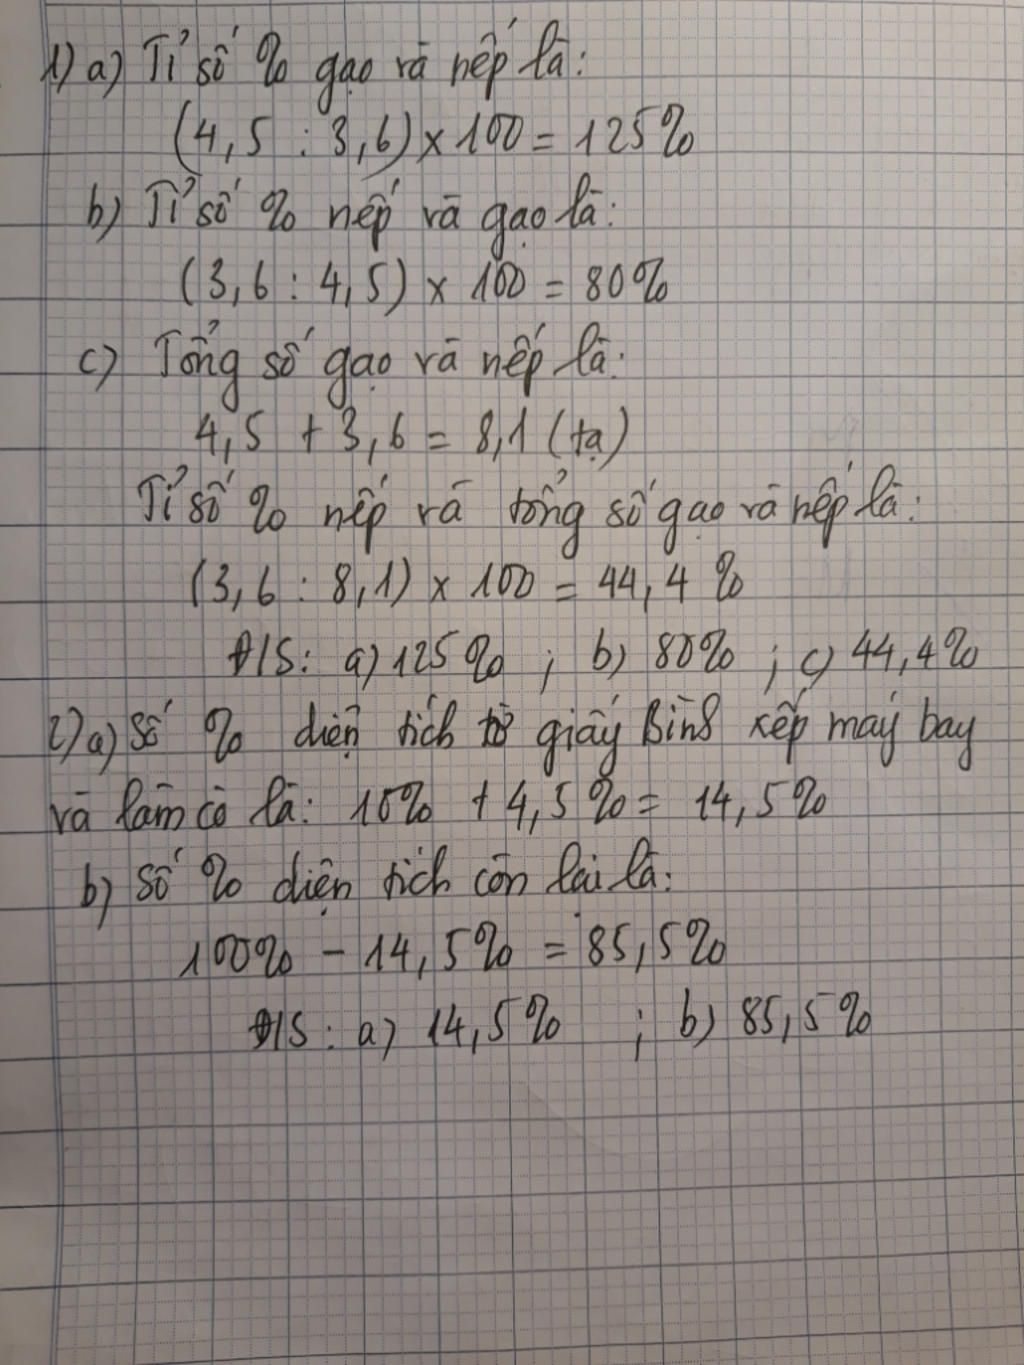 1) a) Tỉ số % gạo và nếp là:
(4,5 : 3,6) x 100 = 125%
b) Tỉ số % nếp và gạo là:
(3,6 : 4,5) x 100 = 80%
c) Tổng số gạo và nếp là:
4,5 + 3,6 = 8,1 (tạ)
Tỉ số % nếp và tổng số gạo và nếp là:
(3,6 : 8,1) x 100 = 44,4 %
Đ/S: a) 125% ; b) 80% ; c) 44,4%
2) a) Số % diện tích tờ giấy Bình xếp máy bay
và làm cò là: 10% + 4,5% = 14,5%
b) Số % diện tích còn lại là:
100% - 14,5% = 85,5%
Đ/S: a) 14,5% ; b) 85,5%